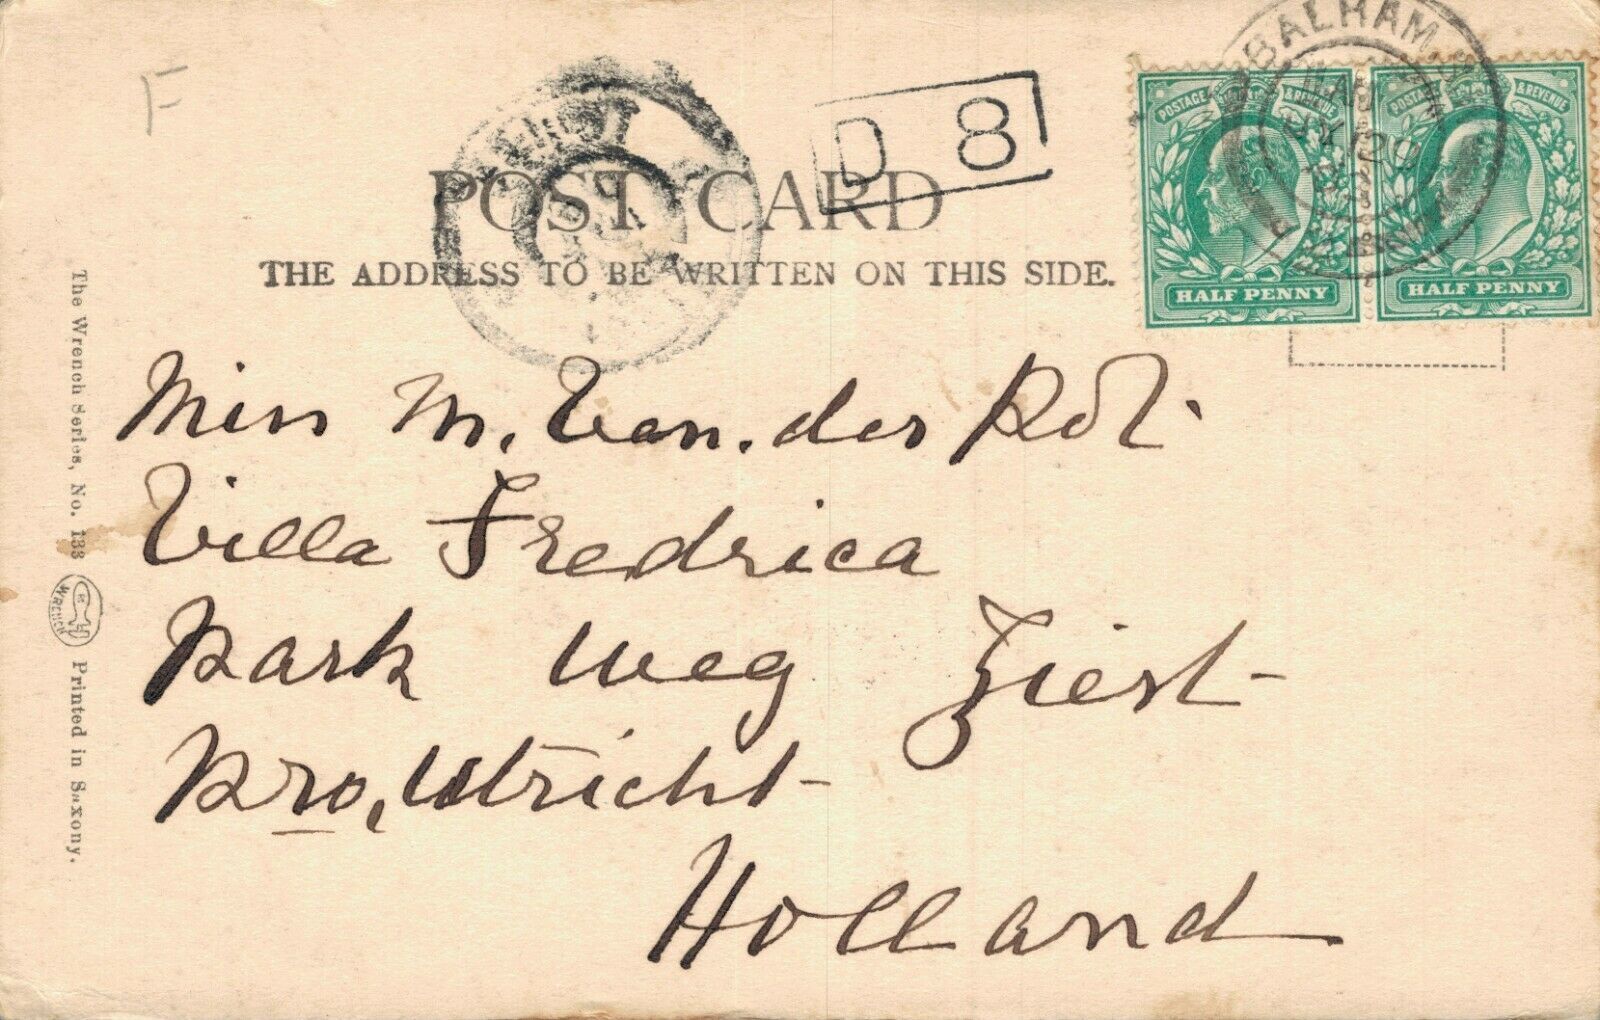 F
BALHAM S
D 8
POSTAGE & REVENUE
POSTAGE & REVENUE
HALF PENNY
HALF PENNY
POST CARD
THE ADDRESS TO BE WRITTEN ON THIS SIDE.
Miss M. Van. der Pol.
Villa Fredrica
Park Weg Ziest
Pro, Utricht
Holland
The Wrench Series, No. 133
WRENCH
Printed in Saxony.